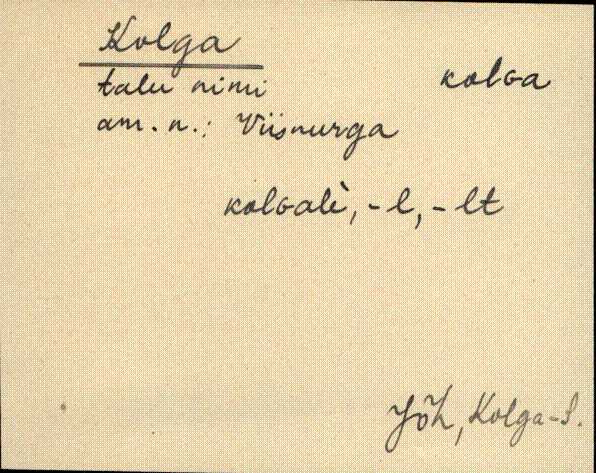 Kolga
talu nimi kolGa
am. n.: Viisnurga
kolGalè, -l, -lt
Jõh, Kolga-